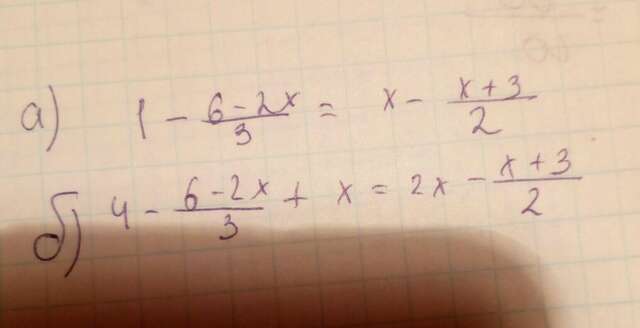 а) 1 - \frac{6-2x}{3} = x - \frac{x+3}{2}
б) 4 - \frac{6-2x}{3} + x = 2x - \frac{x+3}{2}